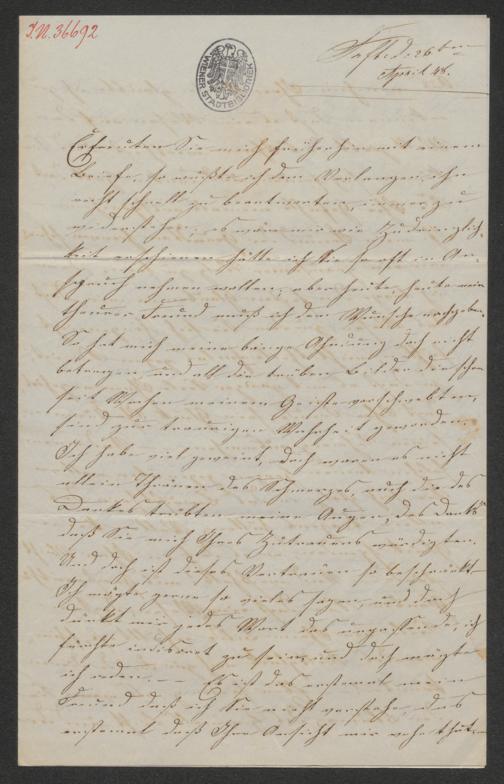 I.N. 36692
WIENER STADTBIBLIOTHEK
d. 26ten
April 48.
Erfreuten Sie mich früherhin mit einem
Briefe, so mußte ich dem Verlangen, ihn
recht schnell zu beantworten, immer zu
widerstehen, es wäre mir wie Zudringlich-
keit erschienen hätte ich Sie so oft in An-
spruch nehmen wollen, aber heute, heute mein
theurer Freund muß ich dem Wunsche nachgeben.
So hat mich meine bange Ahndung doch nicht
betrogen und all die trüben Bilder die schon
seit Wochen meinem Geiste vorschwebten,
sind zur traurigen Wahrheit geworden.
Ich habe viel geweint, doch waren es nicht
allein Thränen des Schmerzes, auch die des
Dankes trübten meine Augen, des Danks
daß Sie mich Ihres Zutrauens würdigten.
Und doch ist dieses Vertrauen so beschränkt
Ich mögte gerne so vieles sagen, und doch
dünkt mir jedes Wort das unpassende, ich
fürchte indiscret zu sein, und doch mögte
ich reden. — Es ist das erstemal mein
Freund daß ich Sie nicht verstehe, das
erstemal daß Ihre Ansicht mir weh thut,